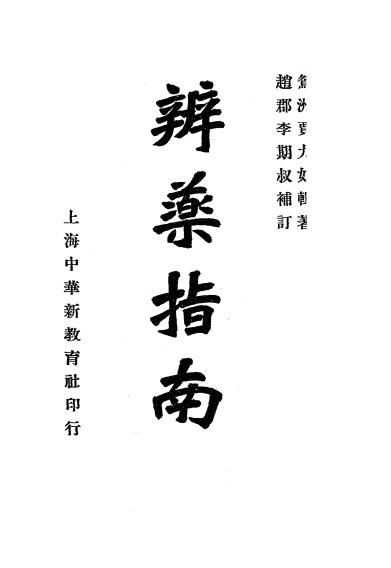 鴛洲賈九如輯著
趙郡李期叔補訂
辨藥指南
上海中華新教育社印行